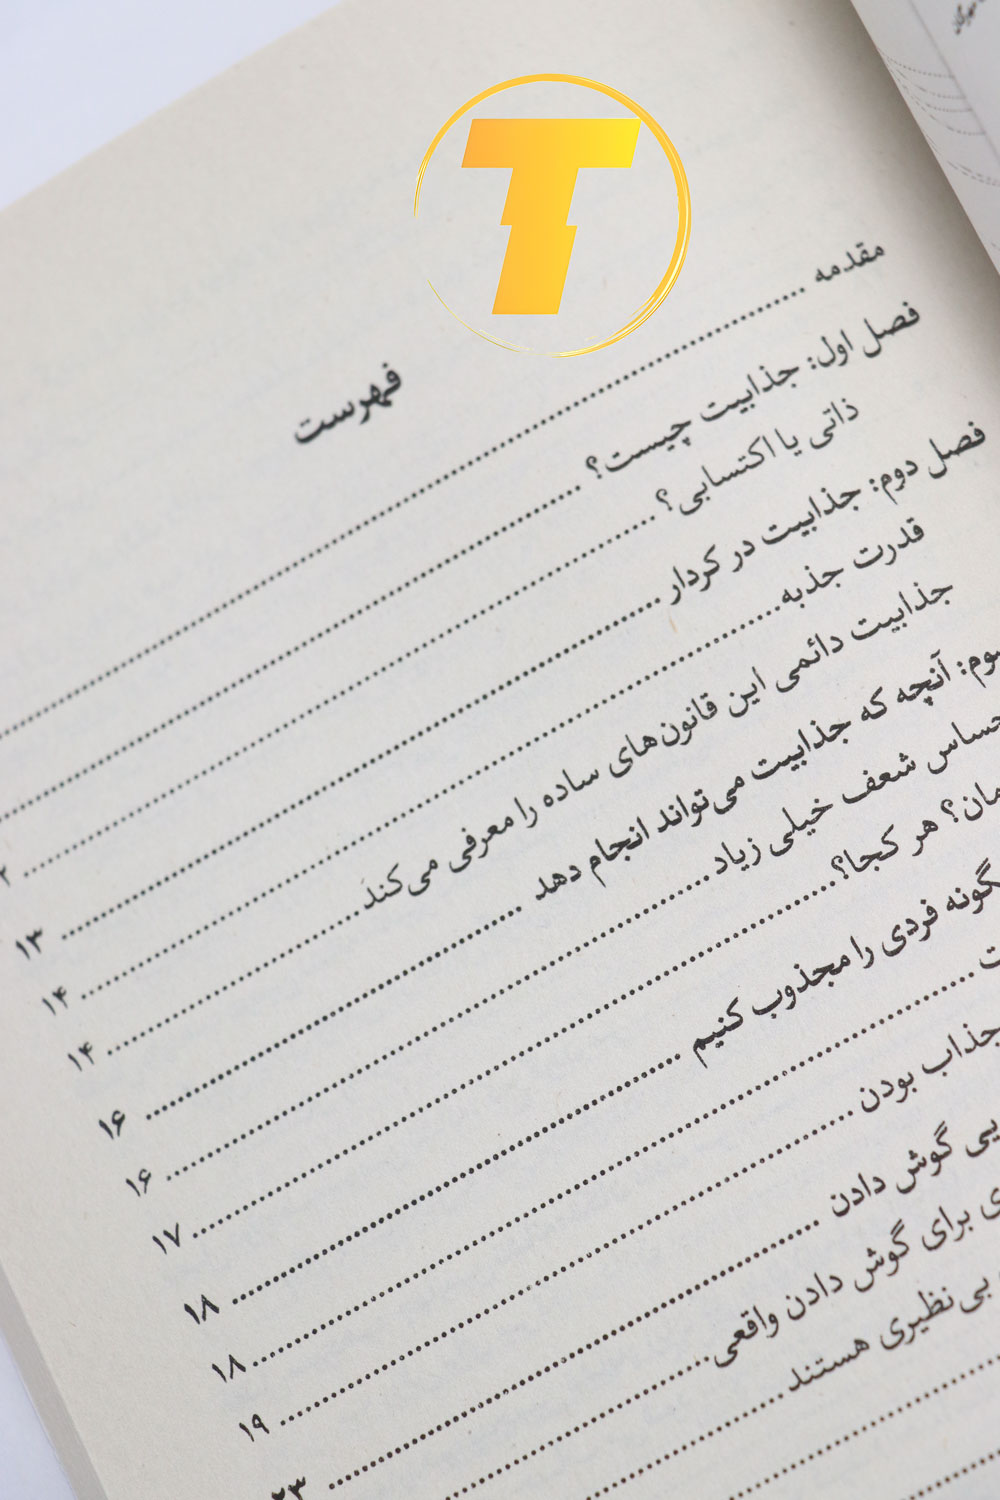 T
فهرست
مقدمه
فصل اول: جذابیت چیست؟
ذاتی یا اکتسابی؟
فصل دوم: جذابیت در کردار ۱۳
قدرت جذبه ۱۴
جذابیت دائمی این قانون‌های ساده را معرفی می‌کند ۱۴
آنچه که جذابیت می‌تواند انجام دهد ۱۶
شعف خیلی زیاد ۱۶
هر کجا؟ ۱۷
فردی را مجذوب کنیم ۱۸
۱۸
جذاب بودن ۱۹
گوش دادن ۲۳
برای گوش دادن واقعی
بی‌نظیری هستند